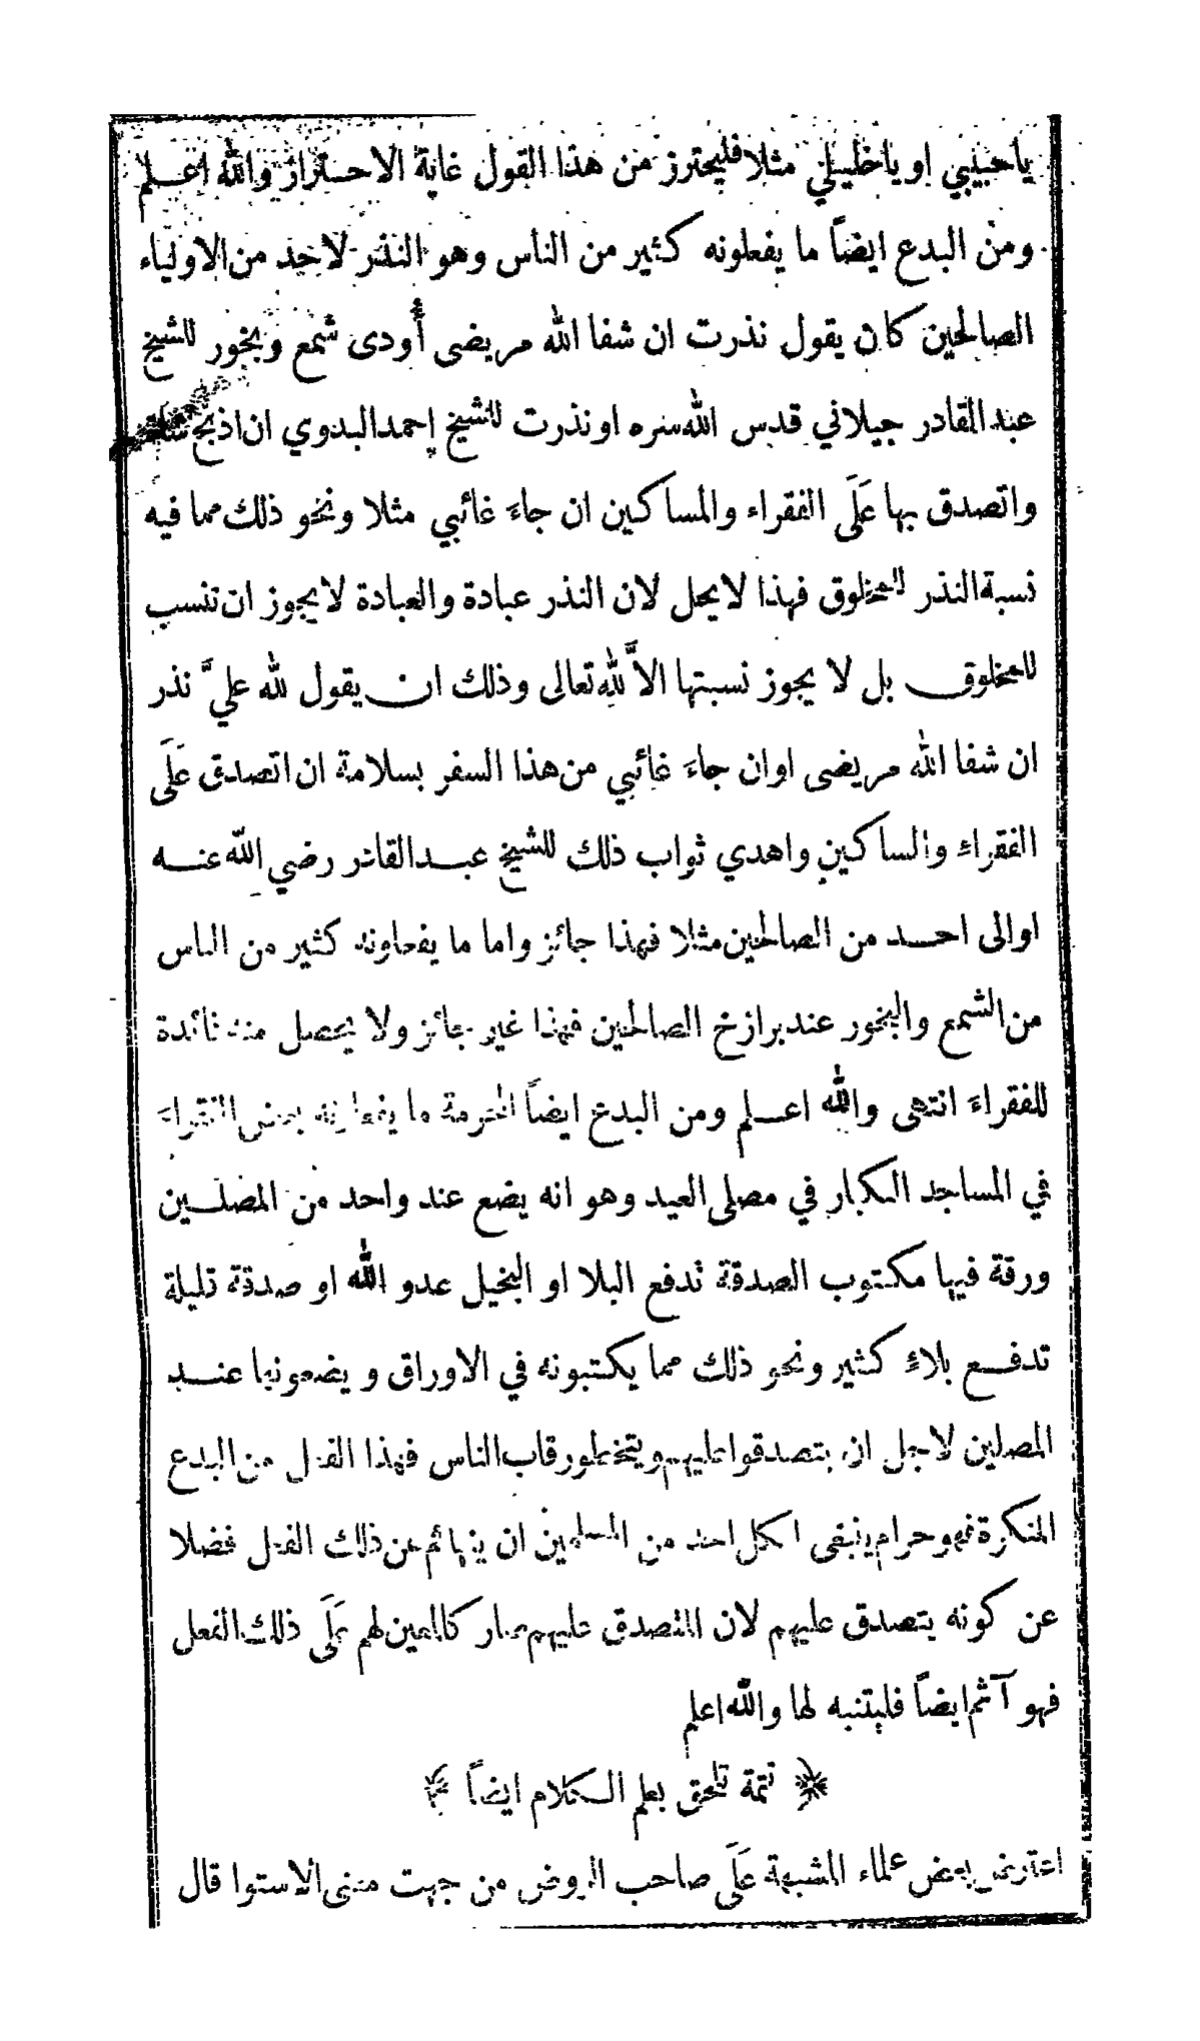 ياحبيبي او ياخليلي مثلا فليحترز من هذا القول غاية الاحتراز والله اعلم
ومن البدع ايضاً ما يفعلونه كثير من الناس وهو النذر لاحد من الاولياء
الصالحين كان يقول نذرت ان شفا الله مريضى أودى شمع وبخور للشيخ
عبد القادر جيلاني قدس الله سره او نذرت للشيخ احمد البدوي ان اذبح شاة
واتصدق بها عَلَى الفقراء والمساكين ان جاءَ غائبي مثلا ونحو ذلك مما فيه
نسبة النذر للمخلوق فهذا لا يحل لان النذر عبادة والعبادة لا يجوز ان تنسب
للمخلوق بل لا يجوز نسبتها الاَّ لله تعالى وذلك ان يقول لله عليَّ نذر
ان شفا الله مريضى او ان جاءَ غائبي من هذا السفر بسلامة ان اتصدق عَلَى
الفقراء والمساكين واهدي ثواب ذلك للشيخ عبد القادر رضي الله عنه
او الى احد من الصالحين مثلا فهذا جائز واما ما يفعلونه كثير من الناس
من الشمع والبخور عند برازخ الصالحين فهذا غير جائز ولا يحصل منه فائدة
للفقراءَ انتهى والله اعلم ومن البدع ايضاً المحرمة ما يفعلونه بعض الفقراءَ
في المساجد الكبار في مصلى العيد وهو انه يضع عند واحد من المصلين
ورقة فيها مكتوب الصدقة تدفع البلا او البخيل عدو الله او صدقة قليلة
تدفع بلاءً كثير ونحو ذلك مما يكتبونه في الاوراق و يضعونها عند
المصلين لاجل ان يتصدقوا عليهم ويتخطو رقاب الناس فهذا الفعل من البدع
المنكرة فهو حرام ينبغى لكل احد من المسلمين ان ينهائم عن ذلك الفعل فضلا
عن كونه يتصدق عليهم لان المتصدق عليهم صار كالمعين لهم عَلَى ذلك الفعل
فهو آثم ايضاً فليتنبه لها والله اعلم
تتمة تلحق بعلم الكلام ايضاً
اعترض بعض علماء المشبهة عَلَى صاحب الروض من جهت معنى الاستوا قال